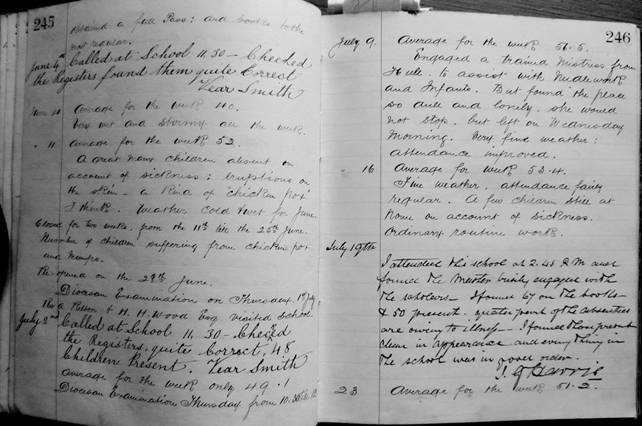 245
obtained a full Pass: and books to the
most regular.
June 4th Called at School 11.30 - Checked
the Registers found them quite Correct
Vear Smith
Average for the week 40.
Very wet and stormy all the week.
" 11 Average for the week 52.
A great many children absent on
account of sickness: Eruptions on
the skin - a kind of 'chicken pox'
I think. Weather cold & wet for June.
Closed for two weeks, from the 11th till the 25th June.
Number of children suffering from chicken pox
and mumps.
Re opened on the 29th June.
Diocesan Examination on Thursday 1st July
H. H. Wood Esq visited School.
July 2nd Called at School 11.30 - Checked
the Registers, quite Correct, 48
Children Present. Vear Smith
Average for the week only 49.1
Diocesan Examination Thursday from 10.30
246
July 9. Average for the week 51.5.
Engaged a trained Mistress from
to assist with Needlework
and Infants. But found the place
so dull and lonely she would
not stop. but left on Wednesday
Morning. Very fine weather:
attendance improved.
16 Average for week 53.4.
Fine weather. attendance fairly
regular. A few children still at
home on account of sickness.
Ordinary routine work.
July 19th
I attended this school at 2.45 P.M. and
found the Master busily engaged with
the scholars - I found 67 on the books
& 50 present. greater part of the absentees
are owing to illness - I found those present
clean in appearance and every thing in
the school was in good order.
J. G Harris
23 Average for the week 51.2